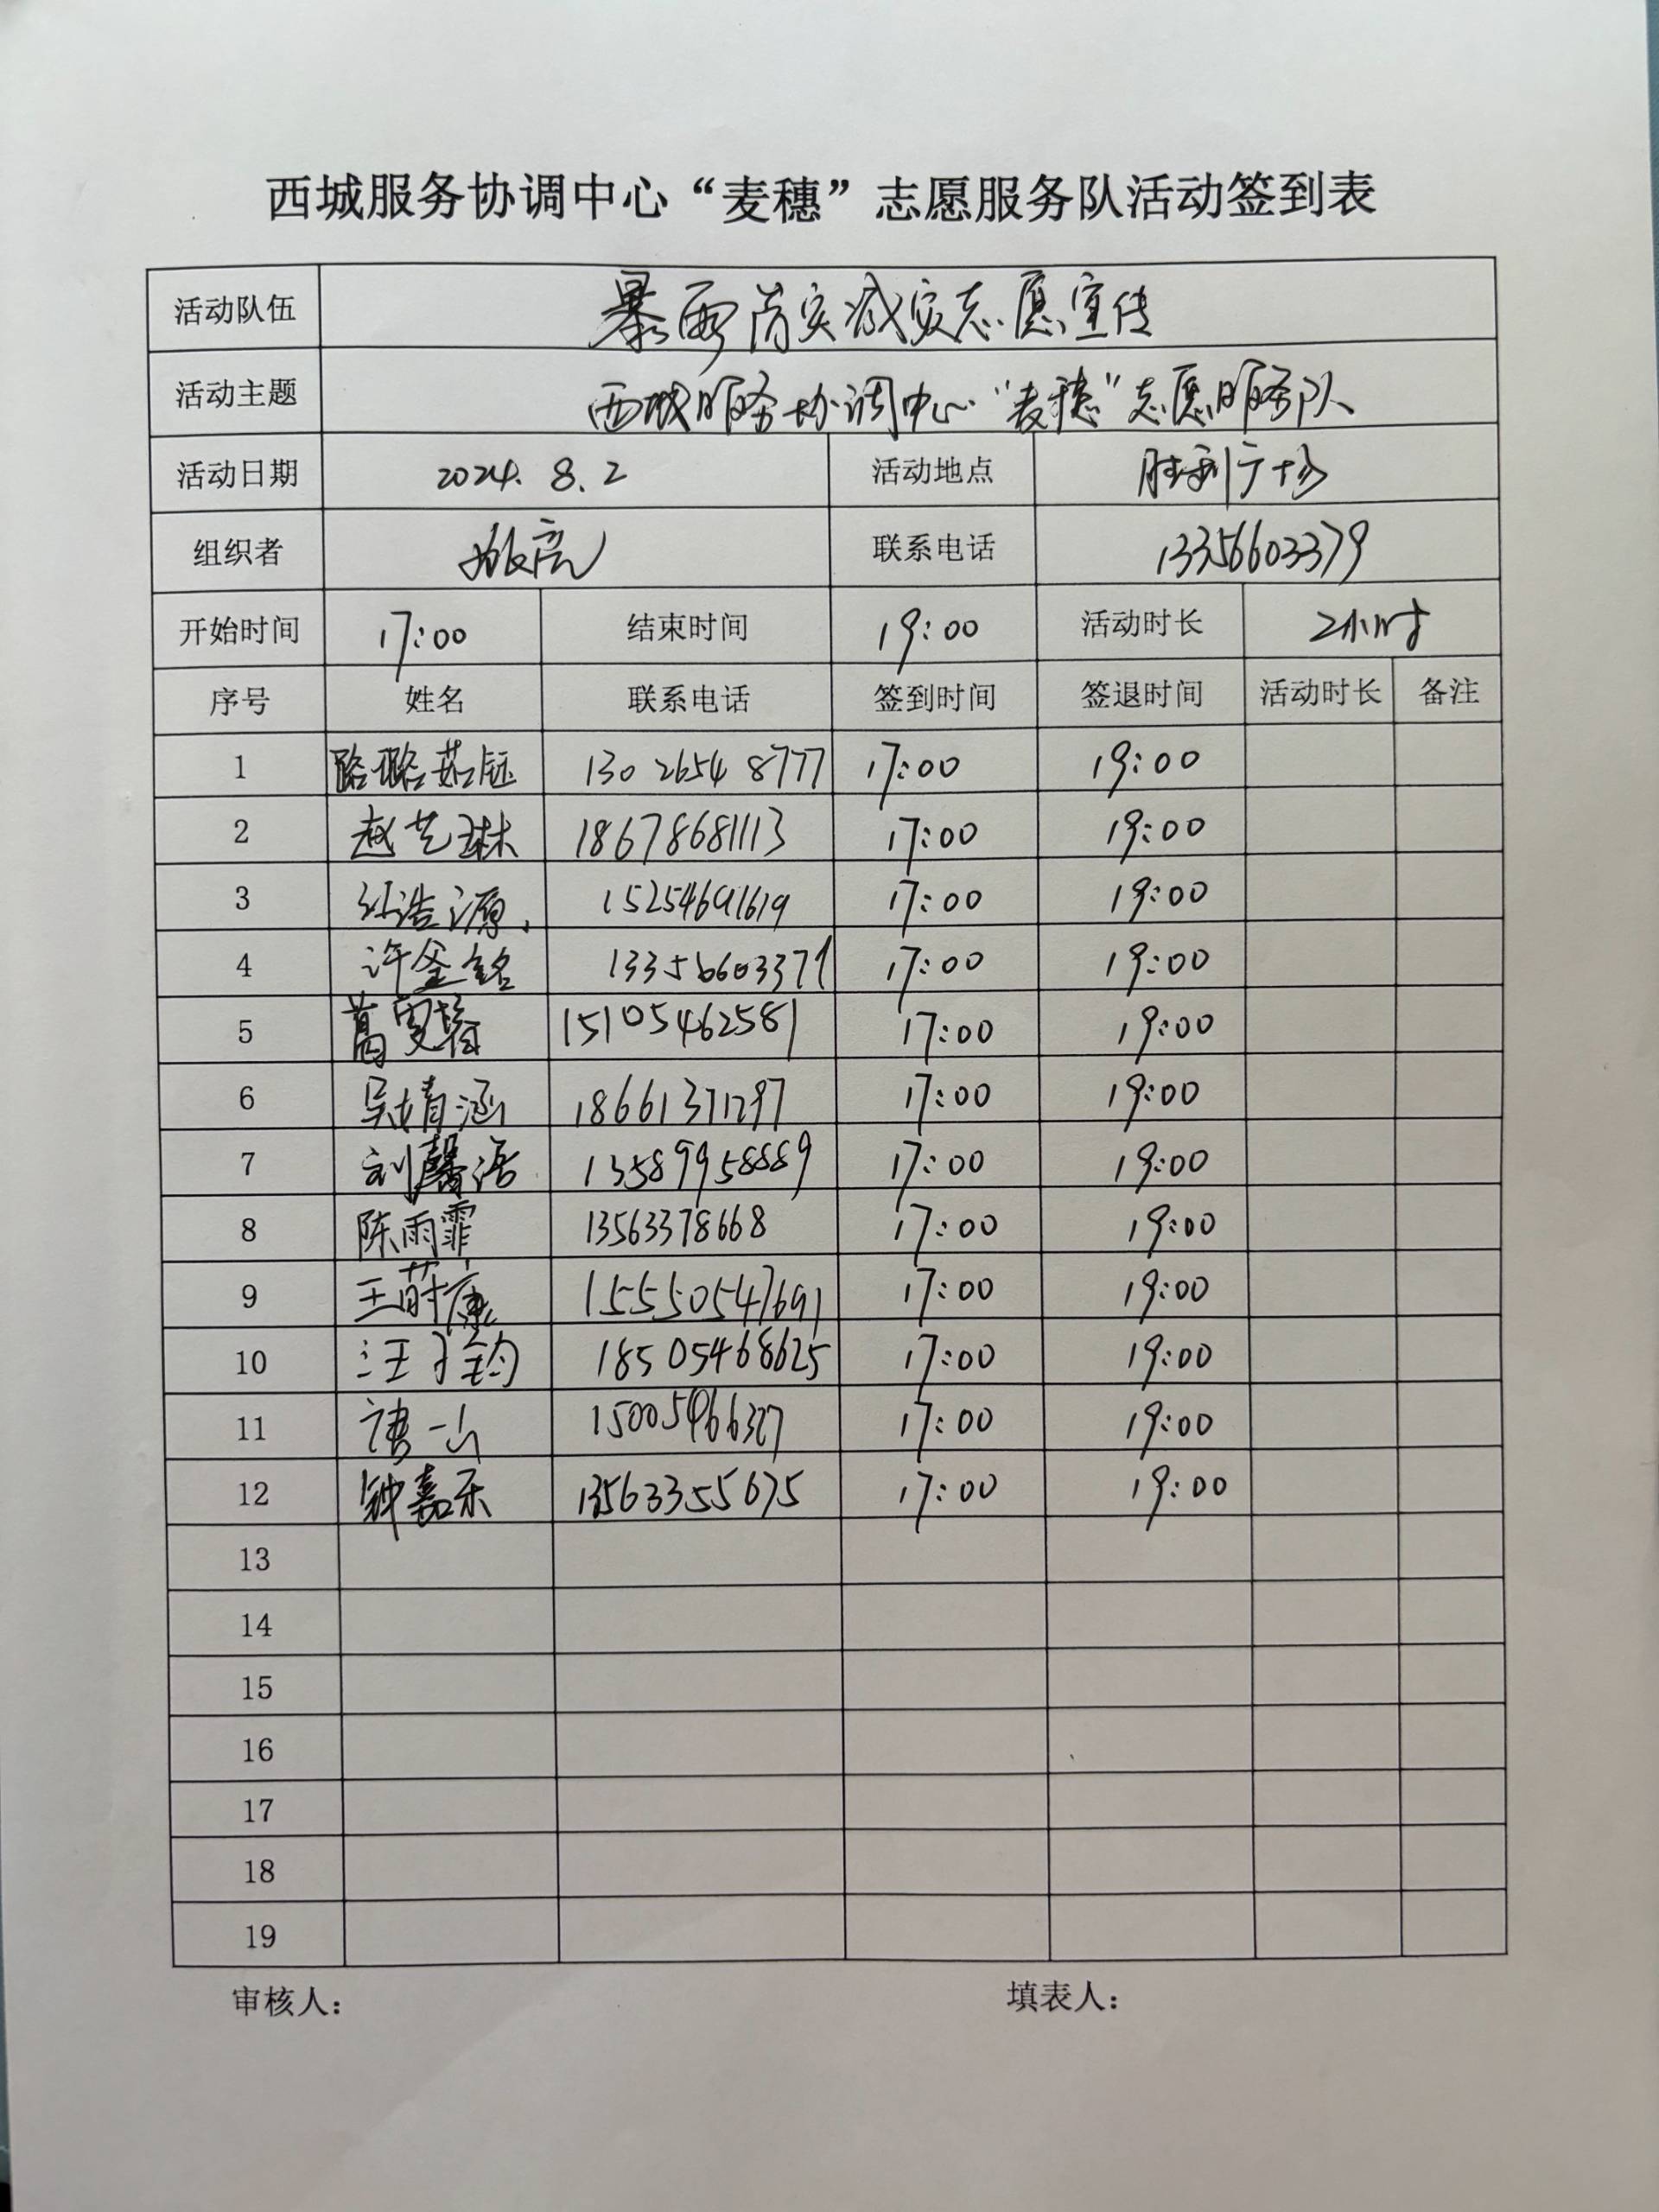 西城服务协调中心“麦穗”志愿服务队活动签到表
活动队伍 暴雨防灾减灾志愿宣传
活动主题 西城服务协调中心“麦穗”志愿服务队
活动日期 2024.8.2 活动地点 胜利广场
组织者 联系电话 13356603379
开始时间 17:00 结束时间 19:00 活动时长 2小时
序号 姓名 联系电话 签到时间 签退时间 活动时长 备注
1 13026548777 17:00 19:00
2 赵艺琳 18678681113 17:00 19:00
3 孙浩源 15254691619 17:00 19:00
4 许签铭 13356603371 17:00 19:00
5 15105462581 17:00 19:00
6 吴婧涵 18661371297 17:00 19:00
7 刘馨语 13589958889 17:00 19:00
8 陈雨霏 13563378668 17:00 19:00
9 王莳康 15550547691 17:00 19:00
10 汪子钧 18505468625 17:00 19:00
11 唐一山 15005466327 17:00 19:00
12 钟嘉乐 13563355675 17:00 19:00
13
14
15
16
17
18
19
审核人： 填表人：